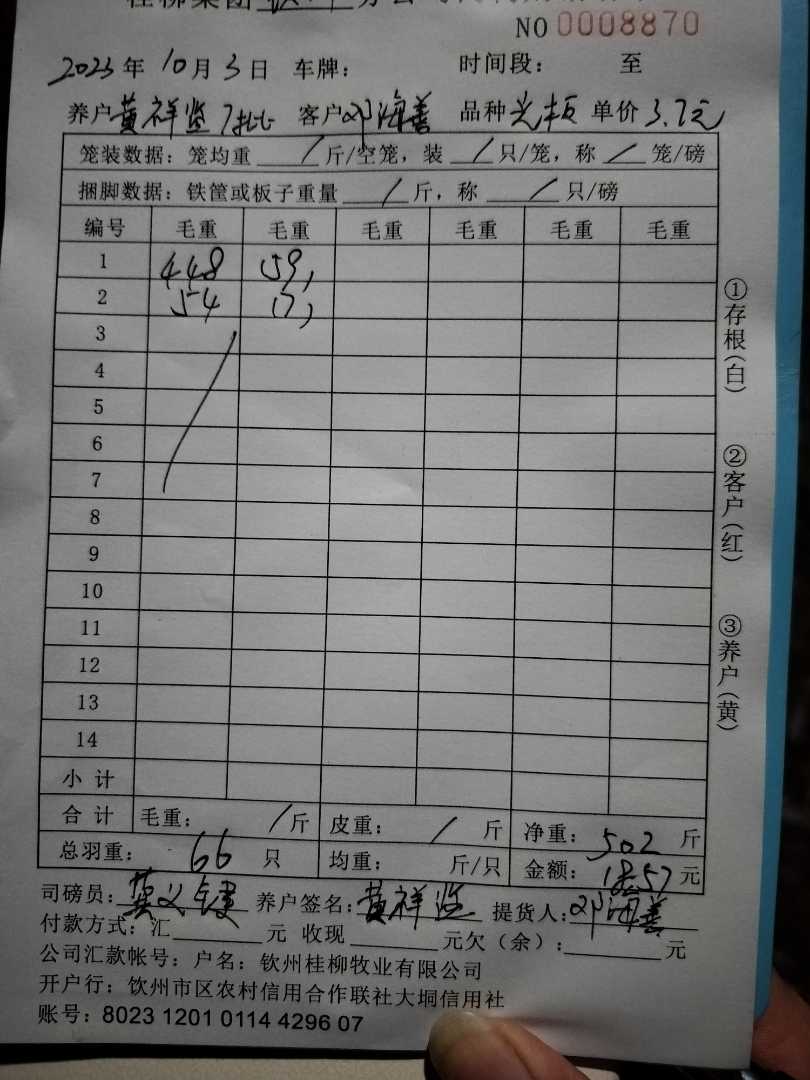 NO 0008870
2023年 10月 3日 车牌： 时间段： 至
养户 黄祥鉴 7批 客户 邓海善 品种 光板 单价 3.7元
笼装数据：笼均重 / 斤/空笼，装 / 只/笼，称 / 笼/磅
捆脚数据：铁筐或板子重量 / 斤，称 / 只/磅
编号 毛重 毛重 毛重 毛重 毛重 毛重
1 448 59,
2 54 17,
3
4
5
6
7
8
9
10
11
12
13
14
小 计
合 计 毛重： / 斤 皮重： / 斤 净重： 502 斤
总羽重： 66 只 均重： 斤/只 金额： 1857 元
司磅员： 养户签名：黄祥鉴 提货人：邓海善
付款方式：汇 元 收现 元欠（余）： 元
公司汇款帐号：户名：钦州桂柳牧业有限公司
开户行：钦州市区农村信用合作联社大垌信用社
账号：8023 1201 0114 4296 07
①存根（白）
②客户（红）
③养户（黄）